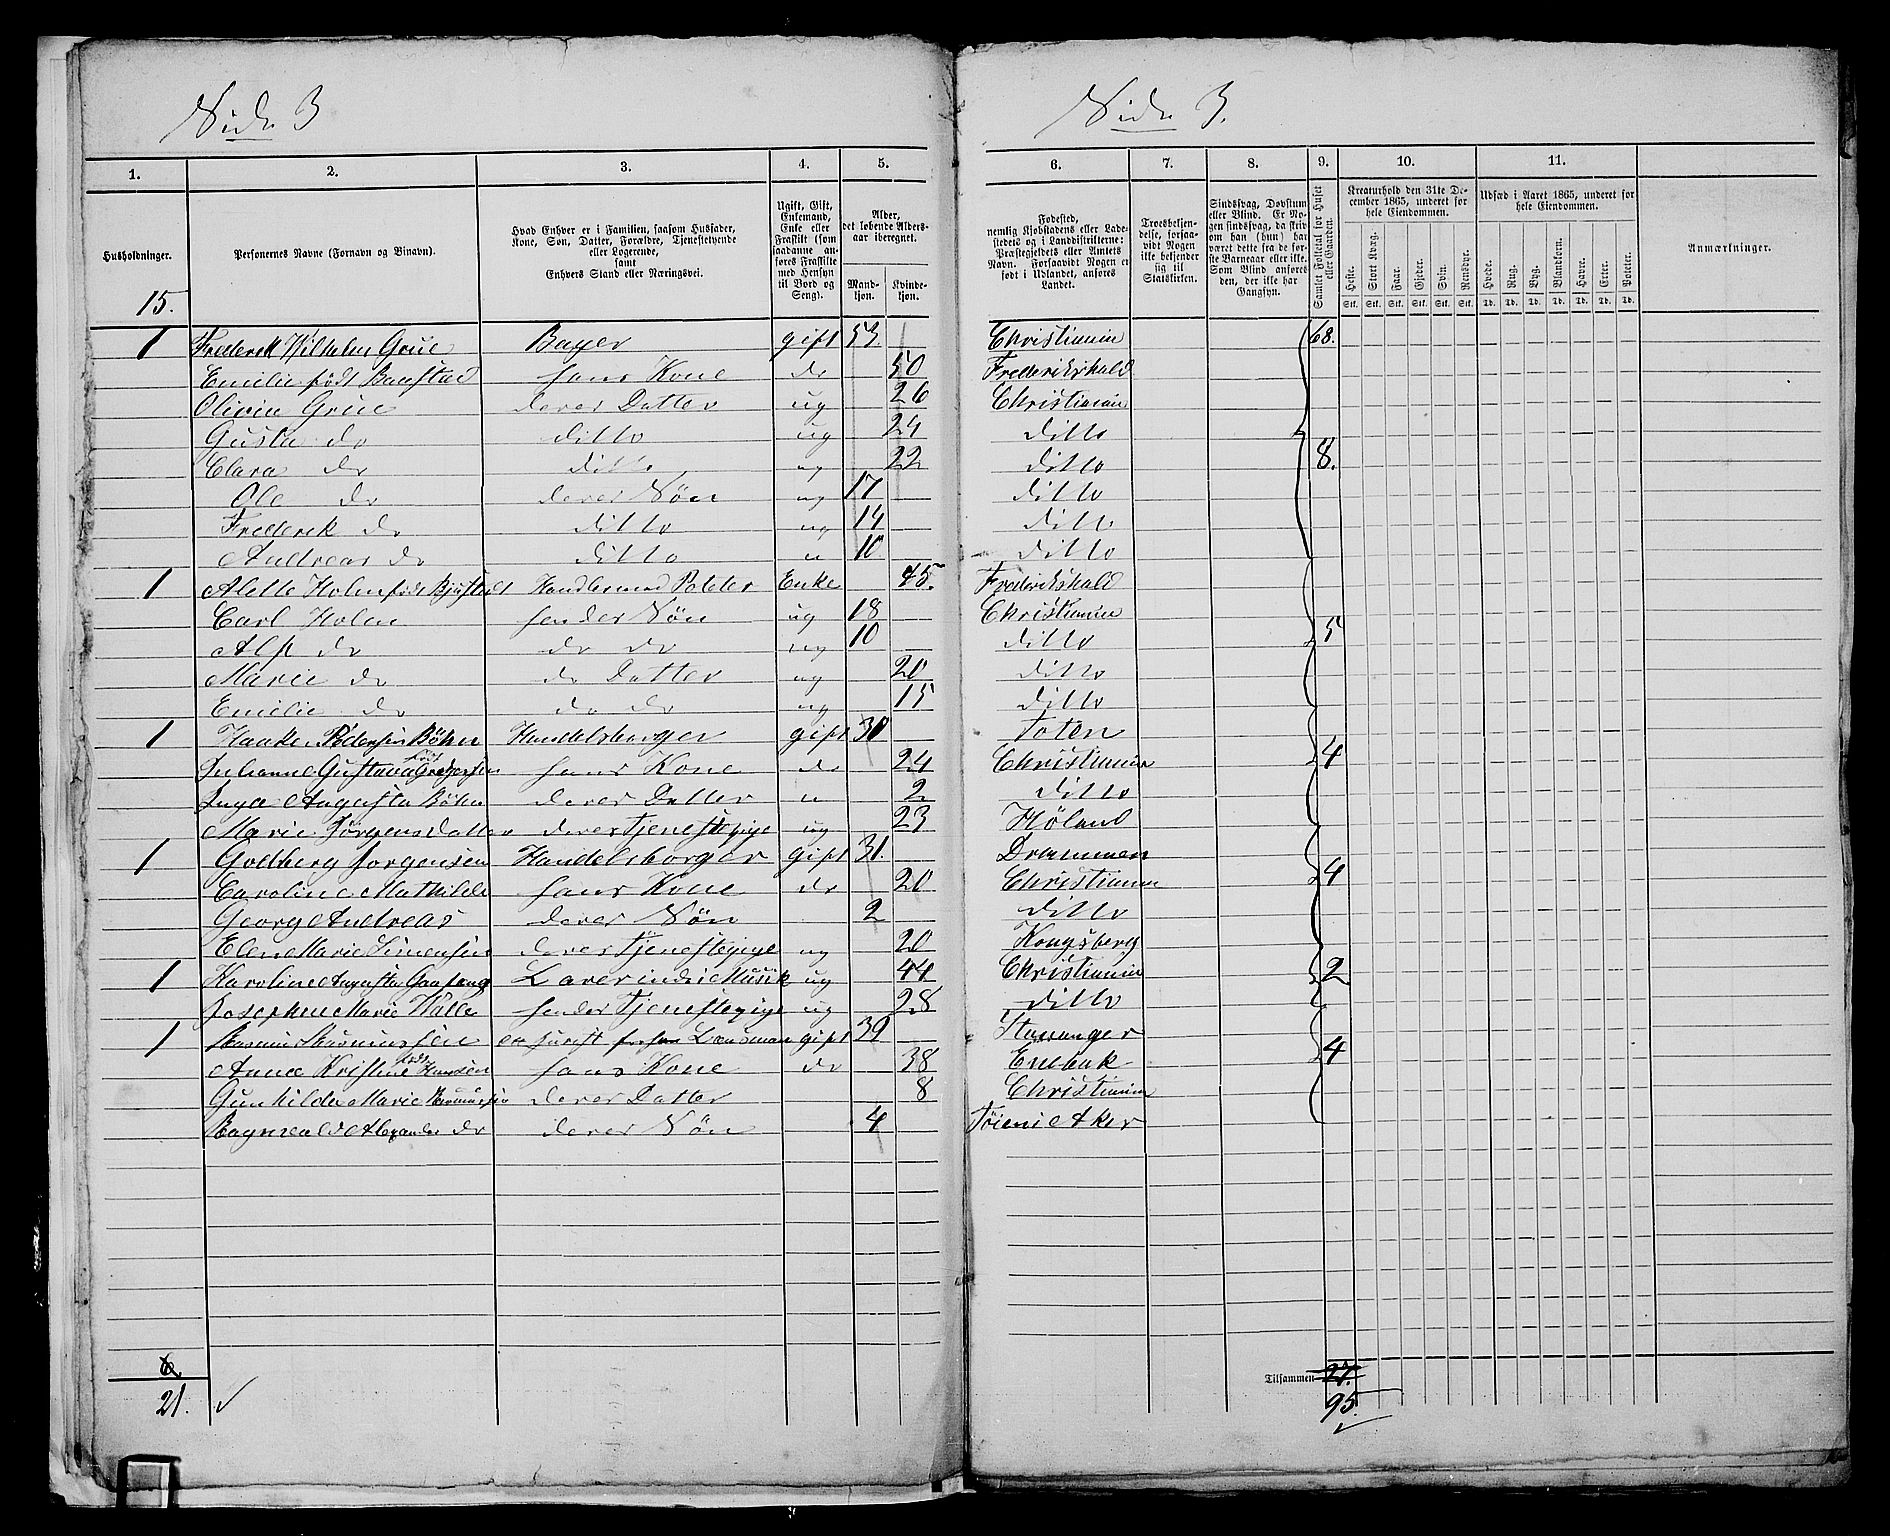 Side 3
Side 3.
1. 2. 3. 4. 5. 6. 7. 8. 9. 10. 11.
Husholdninger.
Personernes Navne (Fornavn og Binavn).
Hvad Enhver er i Familien, saasom Husfader,
Kone, Søn, Datter, Forældre, Tjenestetyende
eller Logerende,
samt
Enhvers Stand eller Næringsvei.
Ugift, Gift,
Enkemand,
Enke eller
Fraskilt (som
saadanne an-
føres Fraskilte
med Hensyn
til Bord og
Seng).
Alder,
det løbende Alders-
aar iberegnet.
Mand-
kjøn.
Kvinde-
kjøn.
Fødested,
nemlig Kjøbstadens eller Lade-
stedets og i Landdistrikterne:
Præstegjeldets eller Amtets
Navn. Forsaavidt Nogen er
født i Udlandet, anføres
Landet.
Troesbekjen-
delse, forsaa-
vidt Nogen
ikke bekjender
sig til
Statskirken.
Sindssvag, Døvstum
eller Blind. Er No-
gen sindssvag, da skriv
om han (hun) har
været dette fra de før-
ste Barneaar eller ikke.
Som Blind anføres
den, der ikke har
Gangsyn.
Samlet Folketal for Huset
eller Gaarden.
Kreaturhold den 31te De-
cember 1865, underet for
hele Eiendommen.
Heste. Stort Kvæg. Faar. Gjeder. Svin. Rensdyr.
Stk. Stk. Stk. Stk. Stk. Stk.
Udsæd i Aaret 1865, underet for
hele Eiendommen.
Hvede. Rug. Byg. Blandkorn. Havre. Erter. Poteter.
Td. Td. Td. Td. Td. Td. Td.
Anmærkninger.
15.
1 Frederik Wilhelm Grüe Bager gift 53 Christiania 68.
Emilie født Baastad hans Kone do 50 Frederikshald
Olivia Grüe deres Datter ug 26 Christiania
Gusta do ditto ug 24 ditto
Clara do ditto ug 22 ditto 8.
Ole do deres Søn ug 17 ditto
Frederik do ditto ug 14 ditto
Andreas do ditto u 10 ditto
1 Alette Holm født Enke 45. Frederikshald
Carl Holm hendes Søn ug 18 Christiania
Alf do do do ug 10 ditto 5
Marie do do Datter ug 20 ditto
Emilie do do do ug 15 ditto
1 Haaken Pedersen Bøhn Handelsborger gift 30 Toten
Julianne Gustava født hans Kone do 24 Christiania 4
Inga Augusta Bøhn deres Datter u 2 ditto
Marie Jørgensdatter deres Tjenestepige ug 23 Høland
1 Godberg Jørgensen Handelsborger gift 31. Drammen
Caroline Mathilde hans Kone do 20 Christiania 4
Georg Andreas deres Søn 2 ditto
Elen Marie Simensen deres Tjenestepige ug 20 Kongsberg
1 Karoline Augusta Lærerinde i Musik ug 44 Christiania 2
Josephine Marie hendes Tjenestepige ug 28 ditto
1 Rasmus Rasmussen gift 39 Stavanger
Anna Kristine født Hansen hans Kone do 38 Enebak 4
Gunhilda Marie Rasmussen deres Datter 8 Christiania
Ragnvald Alexander do deres Søn 4 Tøien i Aker
6.
21.
Tilsammen 27.
95.